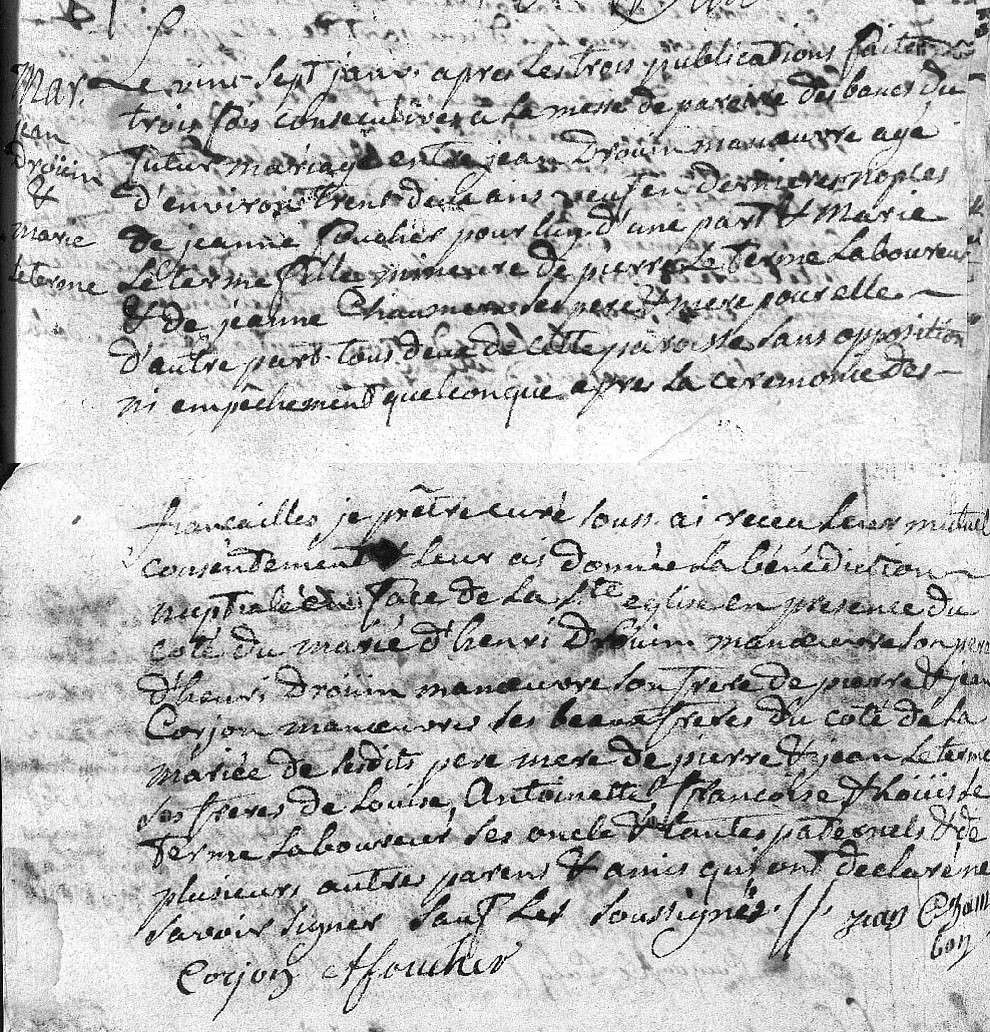 Mar.
jean
Drouin
&
marie
Leterme
Le vint sept janv. apres les trois publications faites
trois fois consecutives a la messe de paroisse des bancs du
futur mariage entre jean Drouin manœuvre agé
d'environ trent deux ans veuf en dernieres noples
de jeanne fouchér pour luy d'une part & Marie
Leterme fille mineure de pierre Le Terme Laboureur
& de jeanne Chaumer ses pere & mere pour elle
d'autre part. tous deux de cette paroisse sans opposition
ni empêchement quelconque apres la ceremonie des
fiançailles je prêtre curé souss. ai receu leur mutuel
consentement & leur ai donnée la bénédiction
nuptiale en face de la Ste eglise en presence du
coté du marié d'henri Drouin manœuvre son pere
d'henri Drouin manœuvre son frere de pierre & jean
Corjon manœuvres ses beaux freres du coté de la
mariée de sesdits pere mere de pierre & jean Leterme
ses freres de Louise, Antoinette françoise & Loüis le
Terme Laboureur ses oncle & tantes paternels & de
plusieurs autres parens & amis qui ont declaré ne
savoir signer sauf les soussignés. jean Cham
bon
Corjon foucher